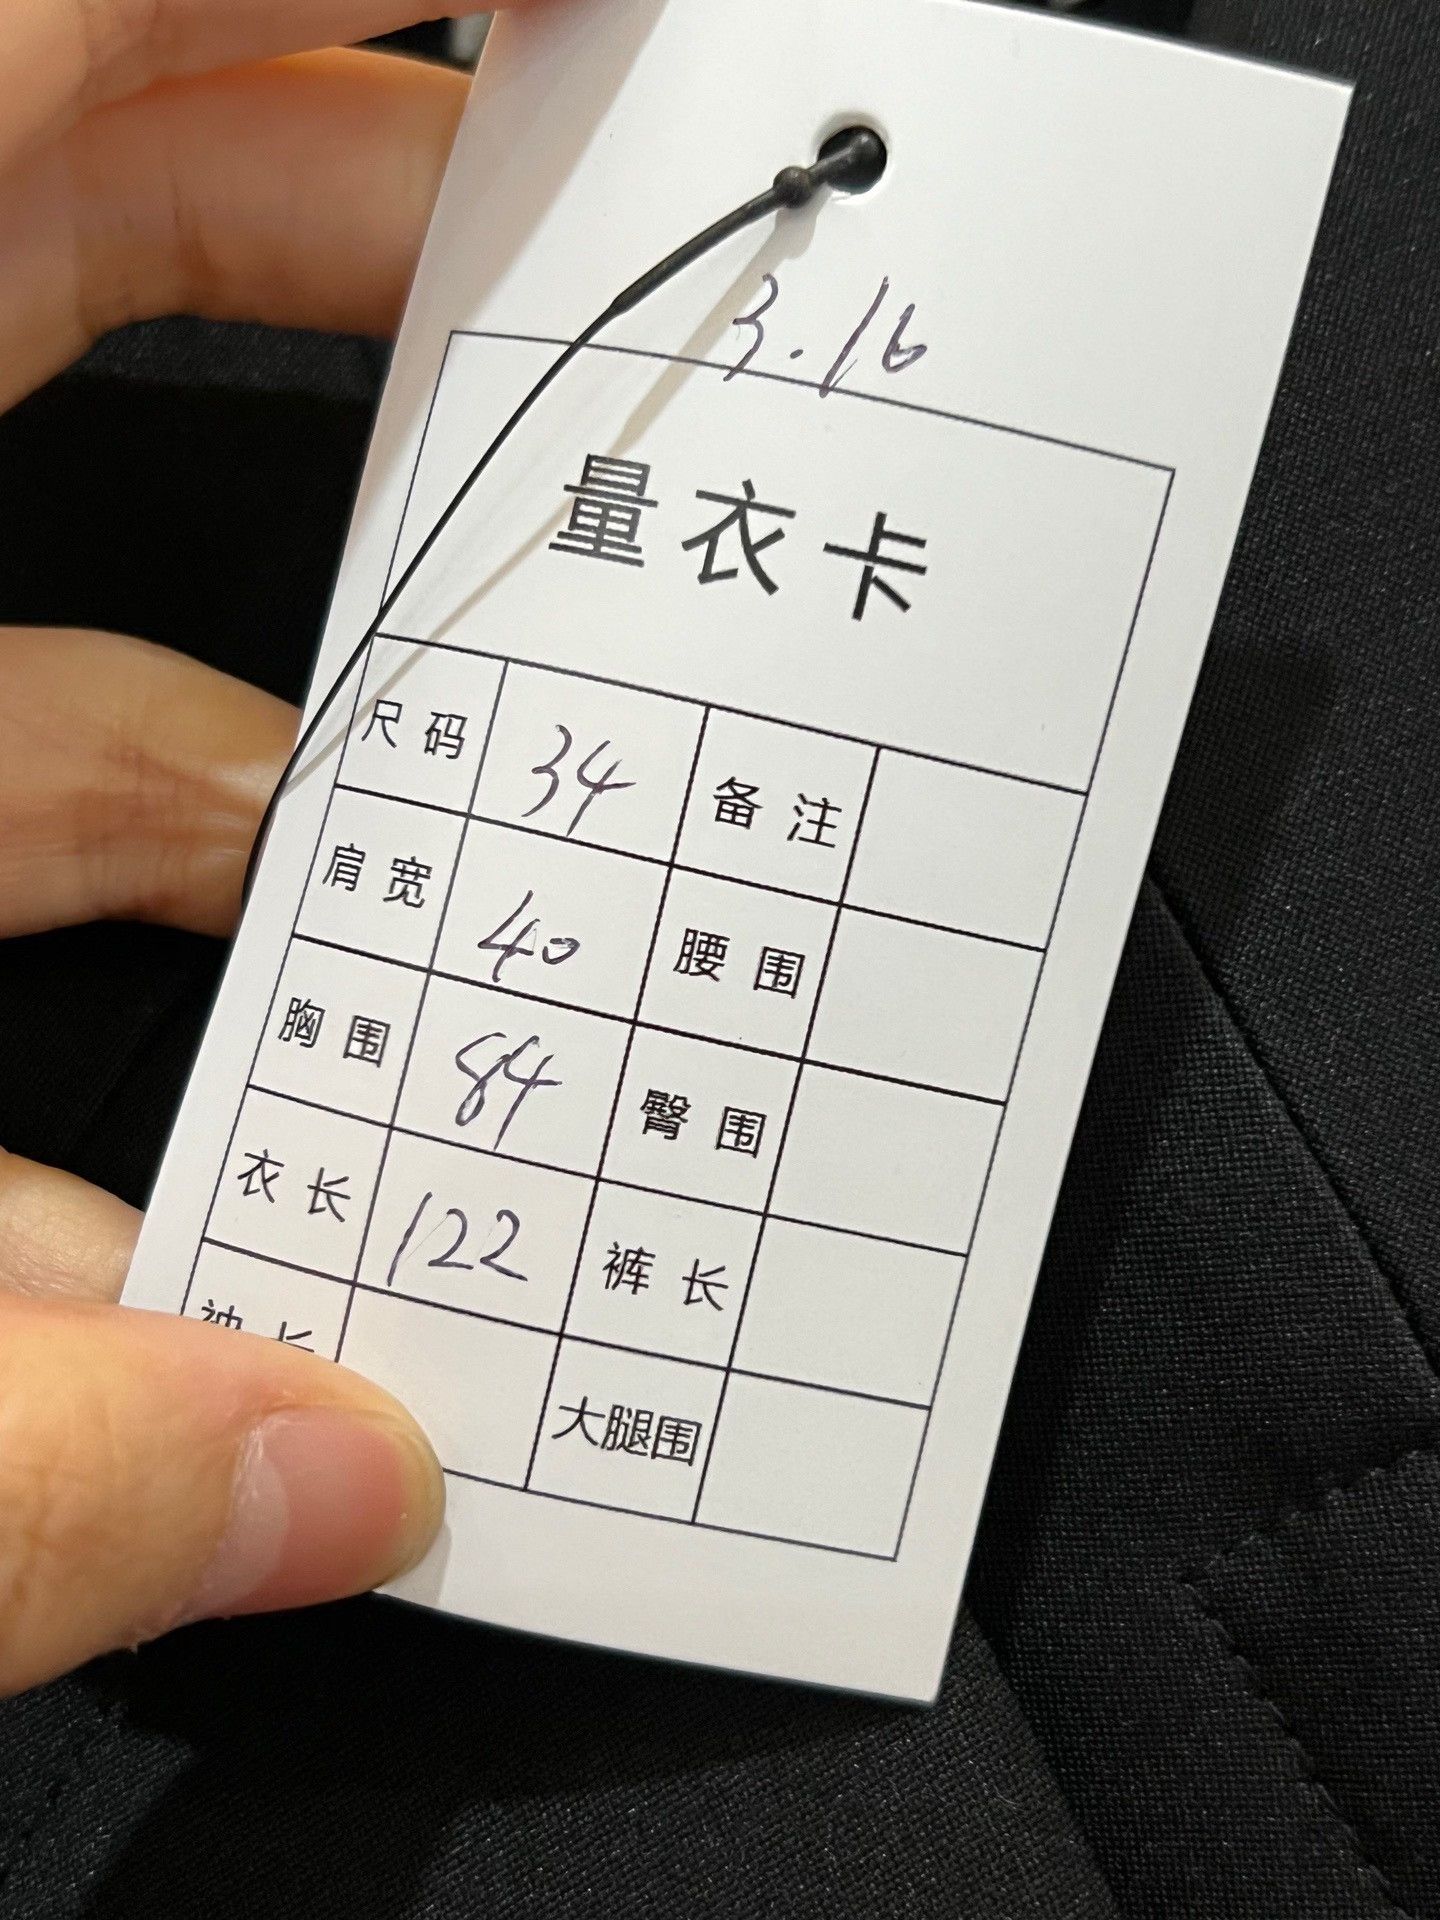 3.16
量衣卡
尺码 34 备注
肩宽 40 腰围
胸围 84 臀围
衣长 122 裤长
袖长
大腿围